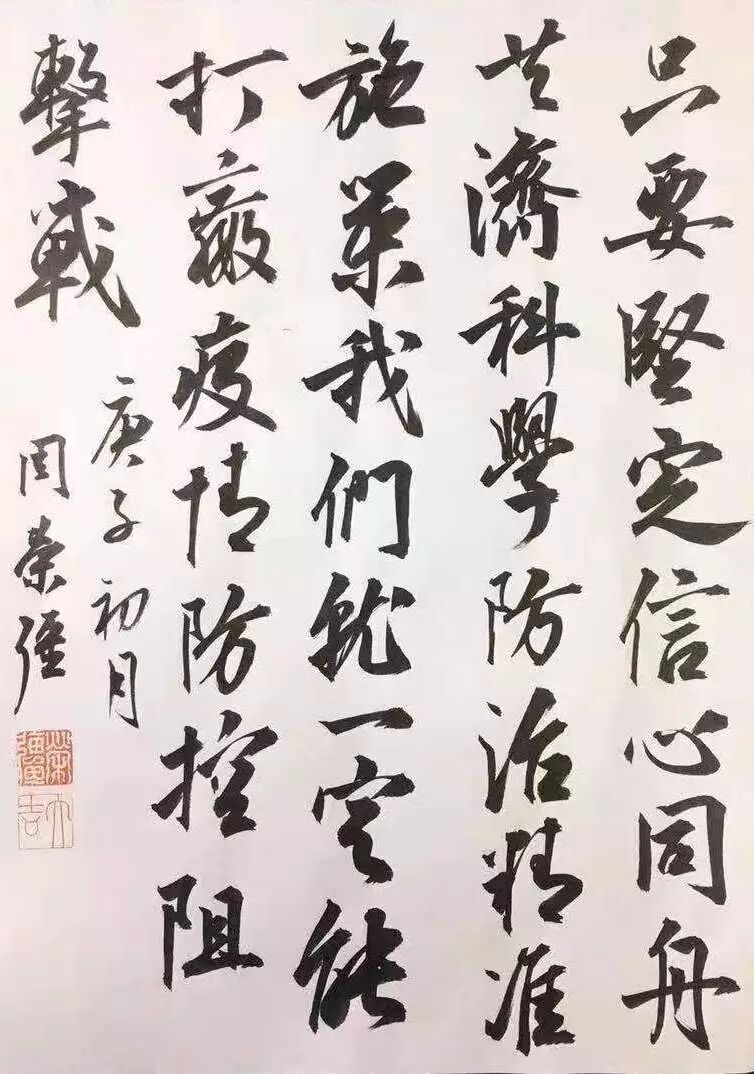 只要堅定信心同舟
共濟科學防治精准
施策我們就一定能
打贏疫情防控阻
擊戰
庚子初月
周榮